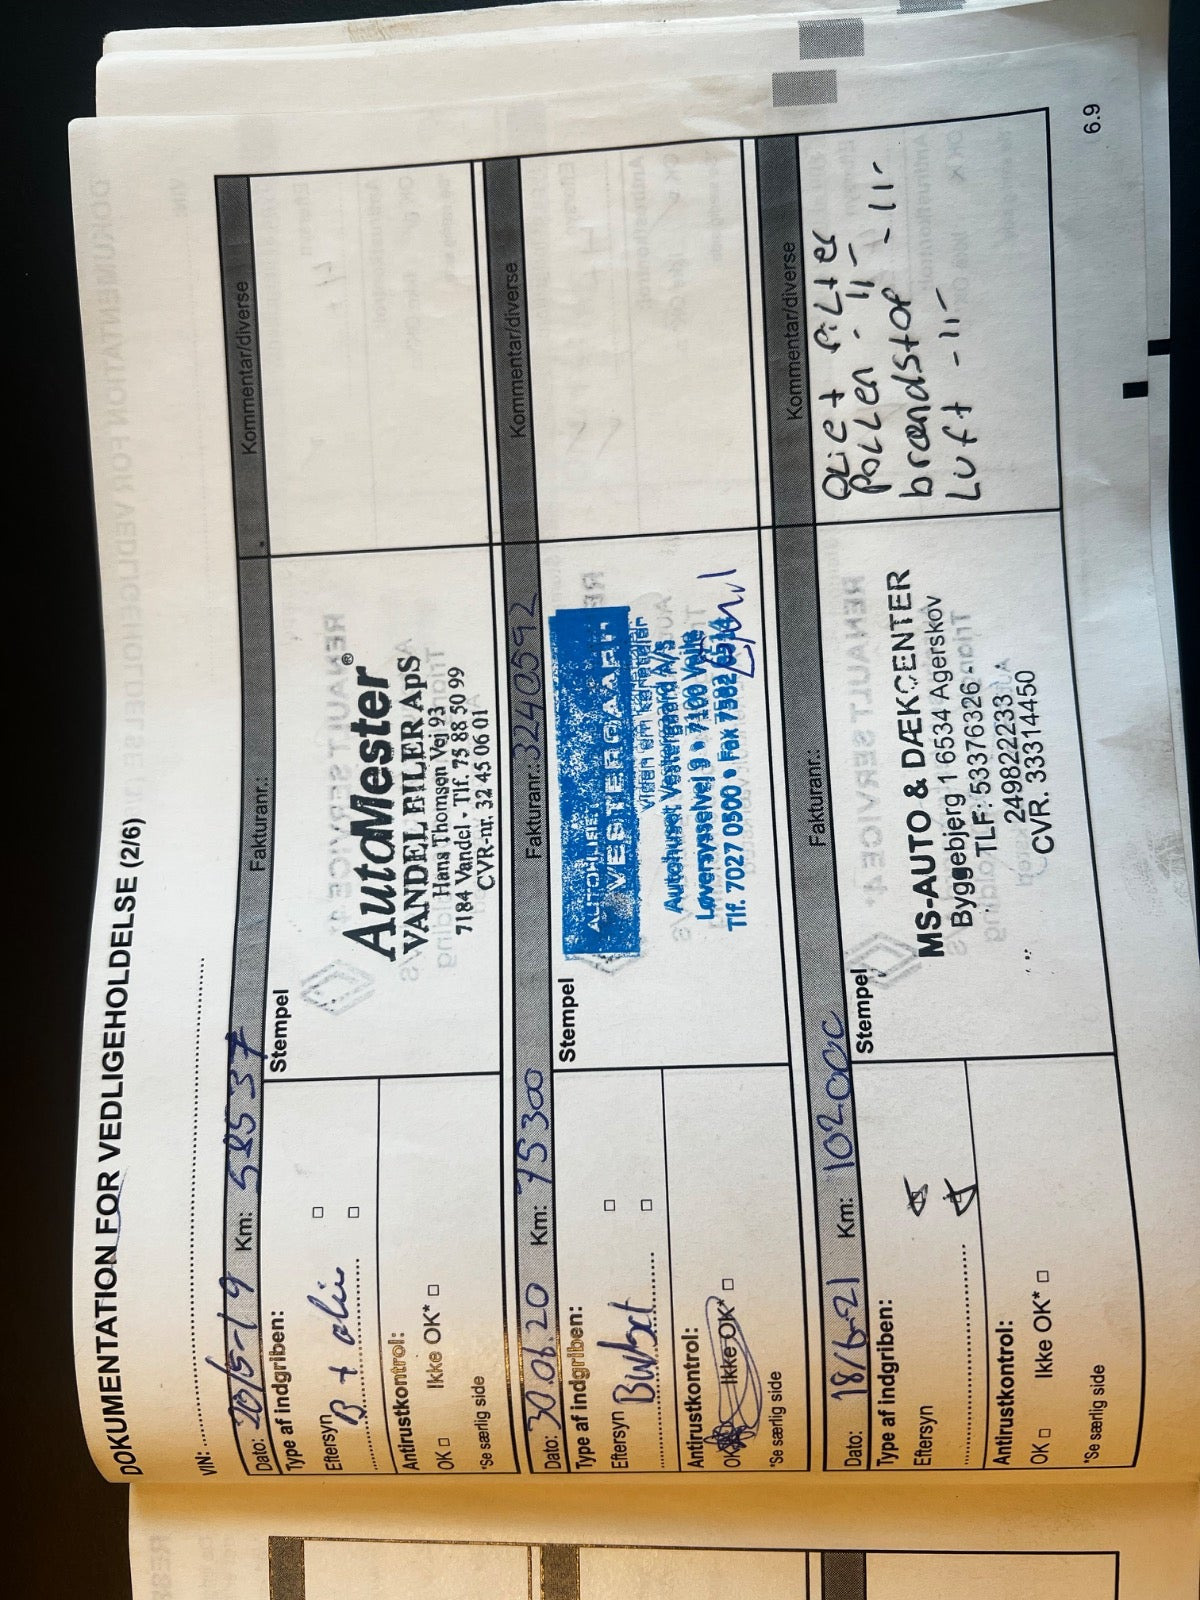 DOKUMENTATION FOR VEDLIGEHOLDELSE (2/6)
VIN:
Dato: 20/5-19 Km: 58537 Fakturanr.: Kommentar/diverse
Type af indgriben:
Stempel
Eftersyn □
B + olie □
AutoMester®
VANDEL BILER ApS
Hans Thomsen Vej 93
7184 Vandel - Tlf. 75 88 50 99
CVR-nr. 32 45 06 01
Antirustkontrol:
OK □ Ikke OK* □
*Se særlig side
Dato: 30.06.20 Km: 75300 Fakturanr.: 3240592 Kommentar/diverse
Type af indgriben:
Stempel
Eftersyn □
□
AUTOHUSET
VESTERGAARD
viden om køreglæde
Autohuset Vestergaard A/S
Løversysselvej 9 • 7100 Vejle
Tlf. 7027 0500 • Fax 7582
Antirustkontrol:
OK Ikke OK* □
*Se særlig side
Dato: 18/6-21 Km: 102000 Fakturanr.: Kommentar/diverse
Type af indgriben:
Stempel
Eftersyn
MS-AUTO & DÆKCENTER
Byggebjerg 1 6534 Agerskov
TLF: 53376326 -
24982223
CVR. 33314450
OLie + FiLter
POLLen -II-
brændstof -II-
Luft -II-
Antirustkontrol:
OK □ Ikke OK* □
*Se særlig side
6.9